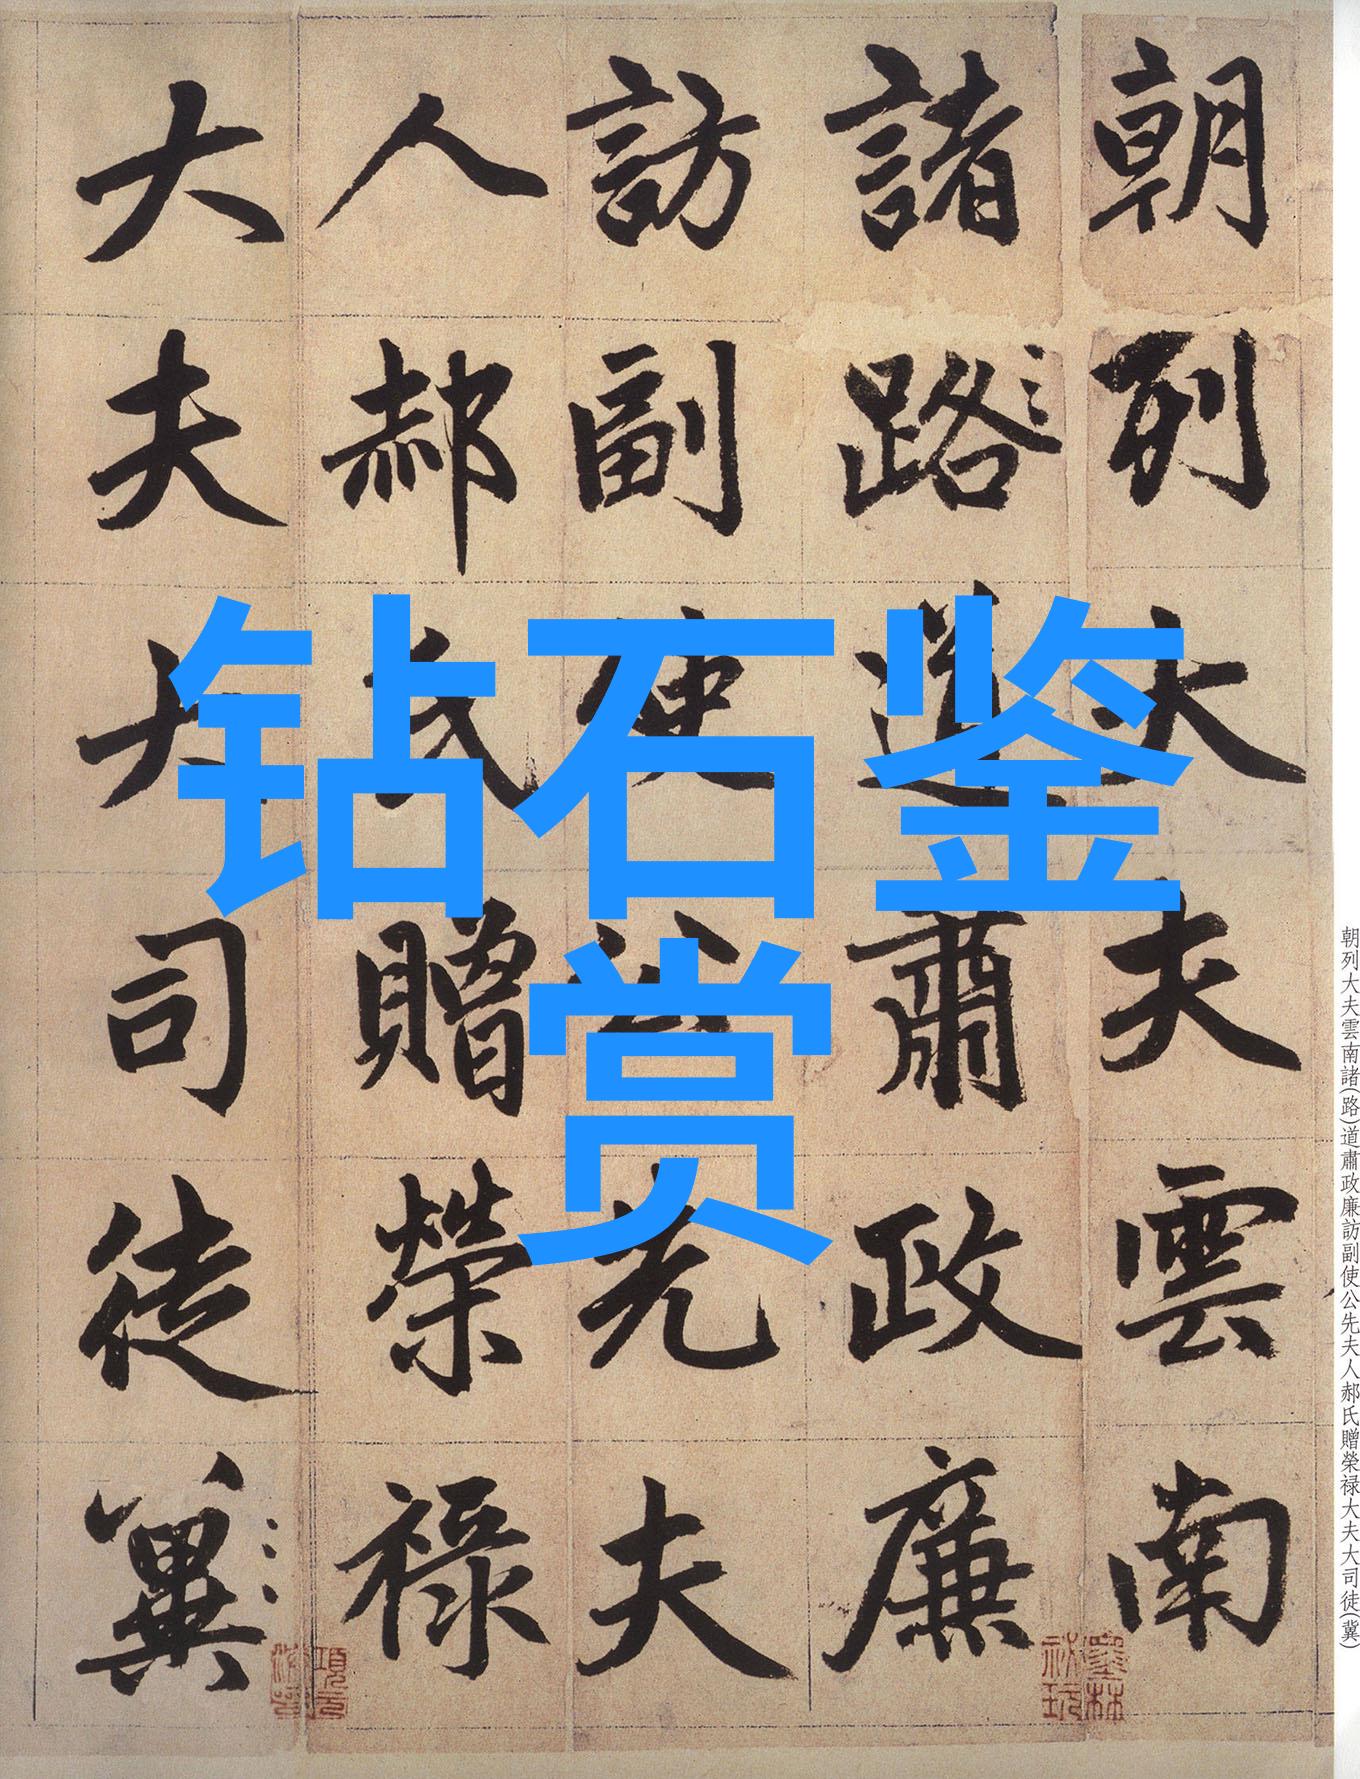 朝列大夫雲南
諸路道肅政廉
訪副使公先夫
人郝氏贈榮祿
大夫大司徒冀
钻石鉴
赏
朝列大夫雲南諸(路)道肅政廉訪副使公先夫人郝氏贈榮禄大夫大司徒(冀)
墨林
祕玩
項元
汴印